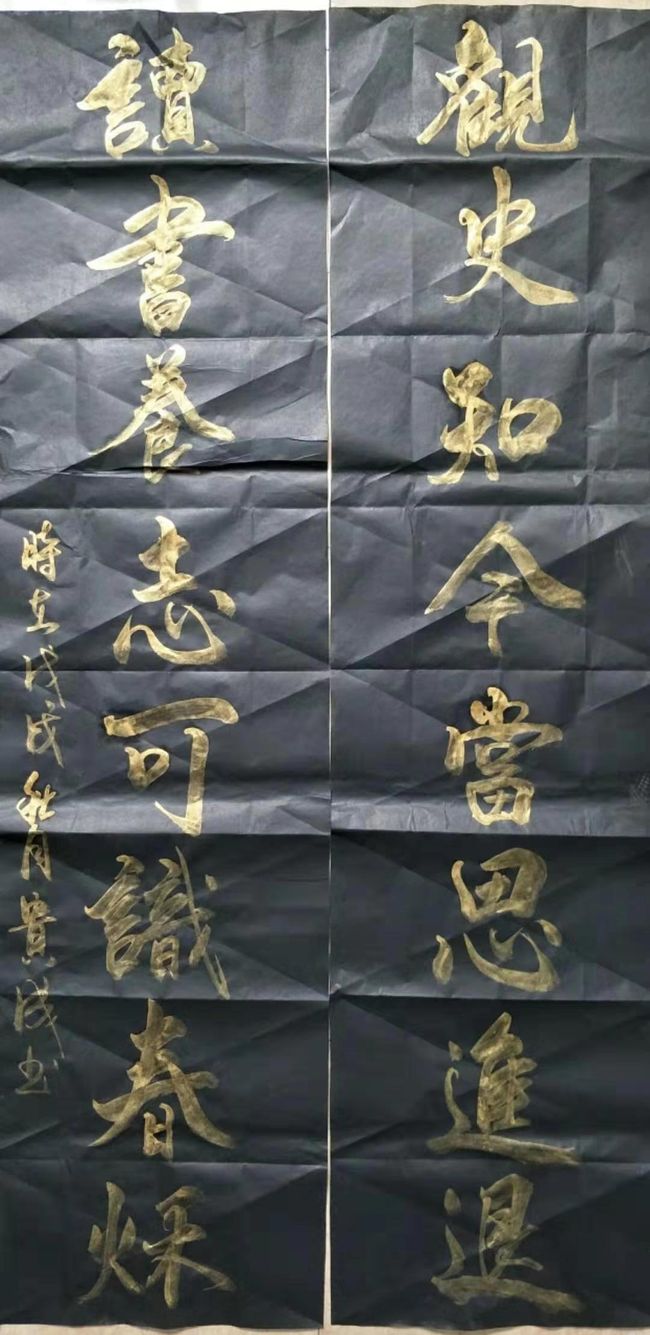 觀史知今當思進退
讀書養志可識春秌
時在戊戌秋月貴成書